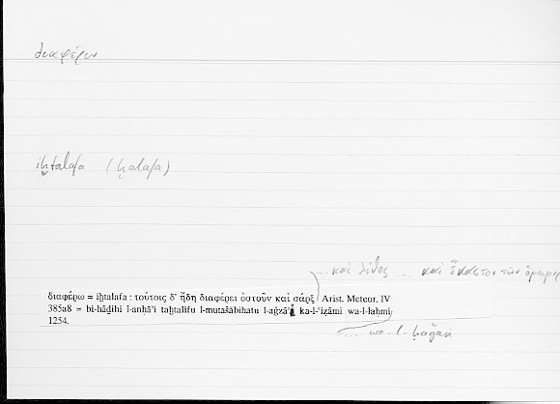 διαφέρω
iḫtalafa (ḫalafa)
... καὶ λίθος ... καὶ ἕκαστον τῶν ὁμοιομερ
διαφέρω = iḫtalafa : τούτοις δ' ἤδη διαφέρει ὀστοῦν καὶ σάρξ Arist. Meteor. IV
385a8 = bi-hāḏihi l-anḥāʾi taḫtalifu l-mutašābihatu l-aǧzāʾi ka-l-ʿiẓāmi wa-l-laḥmi
1254.
... wa-l-ḥaǧari